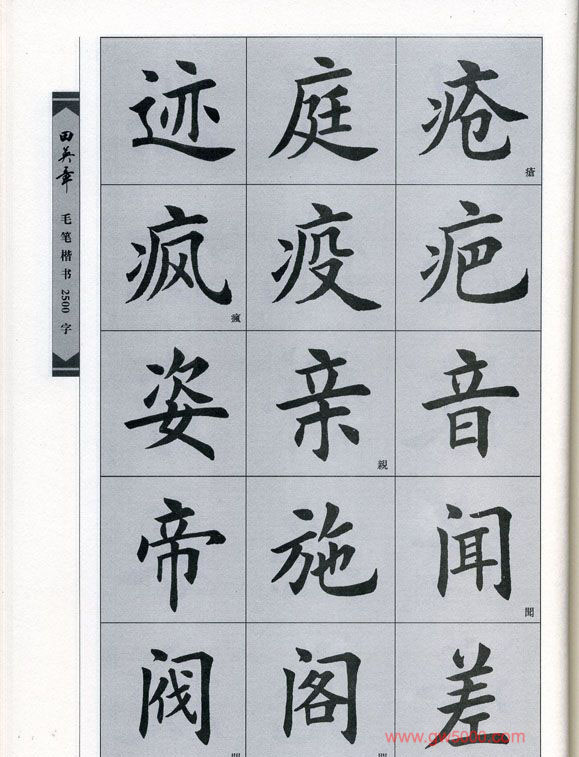 田英章 毛笔楷书 2500 字
迹 庭 疮 瘡
疯 瘋 疫 疤
姿 亲 親 音
帝 施 闻 聞
阀 阁 差
www.gw5000.com